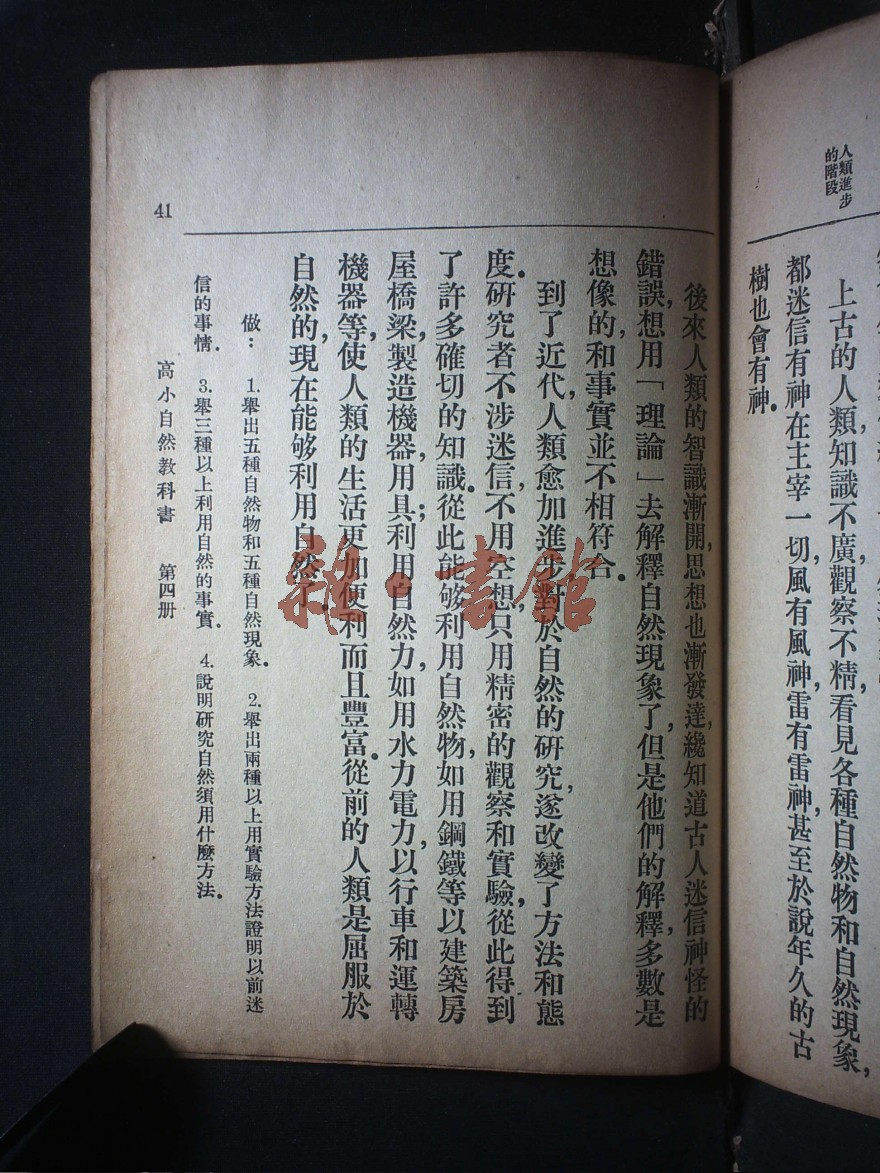 人類進步
的階段
上古的人類，知識不廣，觀察不精，看見各種自然物和自然現象，
都迷信有神在主宰一切，風有風神，雷有雷神，甚至於說年久的古
樹也會有神。
後來人類的智識漸開，思想也漸發達，纔知道古人迷信神怪的
錯誤，想用「理論」去解釋自然現象了，但是他們的解釋，多數是
想像的，和事實並不相符合。
到了近代，人類愈加進步，對於自然的研究，遂改變了方法和態
度。研究者不涉迷信，不用空想，只用精密的觀察和實驗，從此得到
了許多確切的知識。從此能够利用自然物，如用鋼鐵等以建築房
屋橋梁，製造機器，用具；利用自然力，如用水力電力，以行車和運轉
機器等，使人類的生活更加便利而且豐富。從前的人類是屈服於
自然的，現在能够利用自然了。
做：　1.舉出五種自然物和五種自然現象。　2.舉出兩種以上用實驗方法證明以前迷
信的事情。　3.舉三種以上利用自然的事實。　4.說明研究自然須用什麼方法。
高小自然教科書　第四册
41
雜·書館